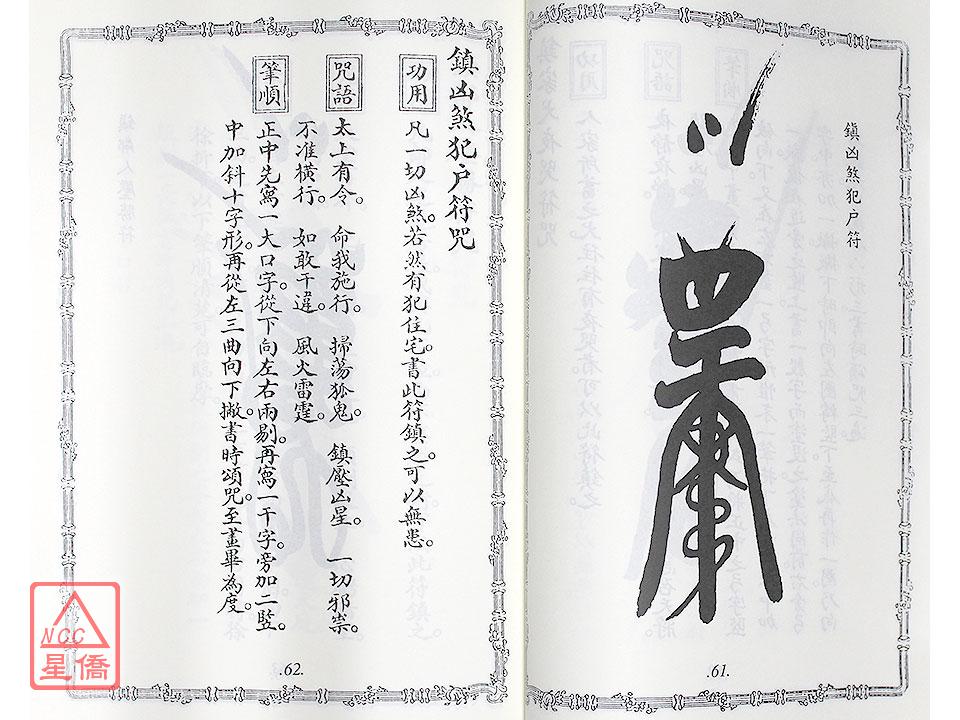 鎮凶煞犯户符
.61.
鎮凶煞犯户符咒
功用
凡一切凶煞。若然有犯住宅。書此符鎮之。可以無患。
咒語
太上有令。 命我施行。 掃蕩狐鬼。 鎮壓凶星。 一切邪祟。
不准橫行。 如敢干違。 風火雷霆。
筆順
正中先寫一大口字。從下向左右兩剔。再寫一干字。旁加二竪。
中加斜十字形。再從左三曲向下撇。書時頌咒。至畫畢為度。
.62.
NCC
星僑